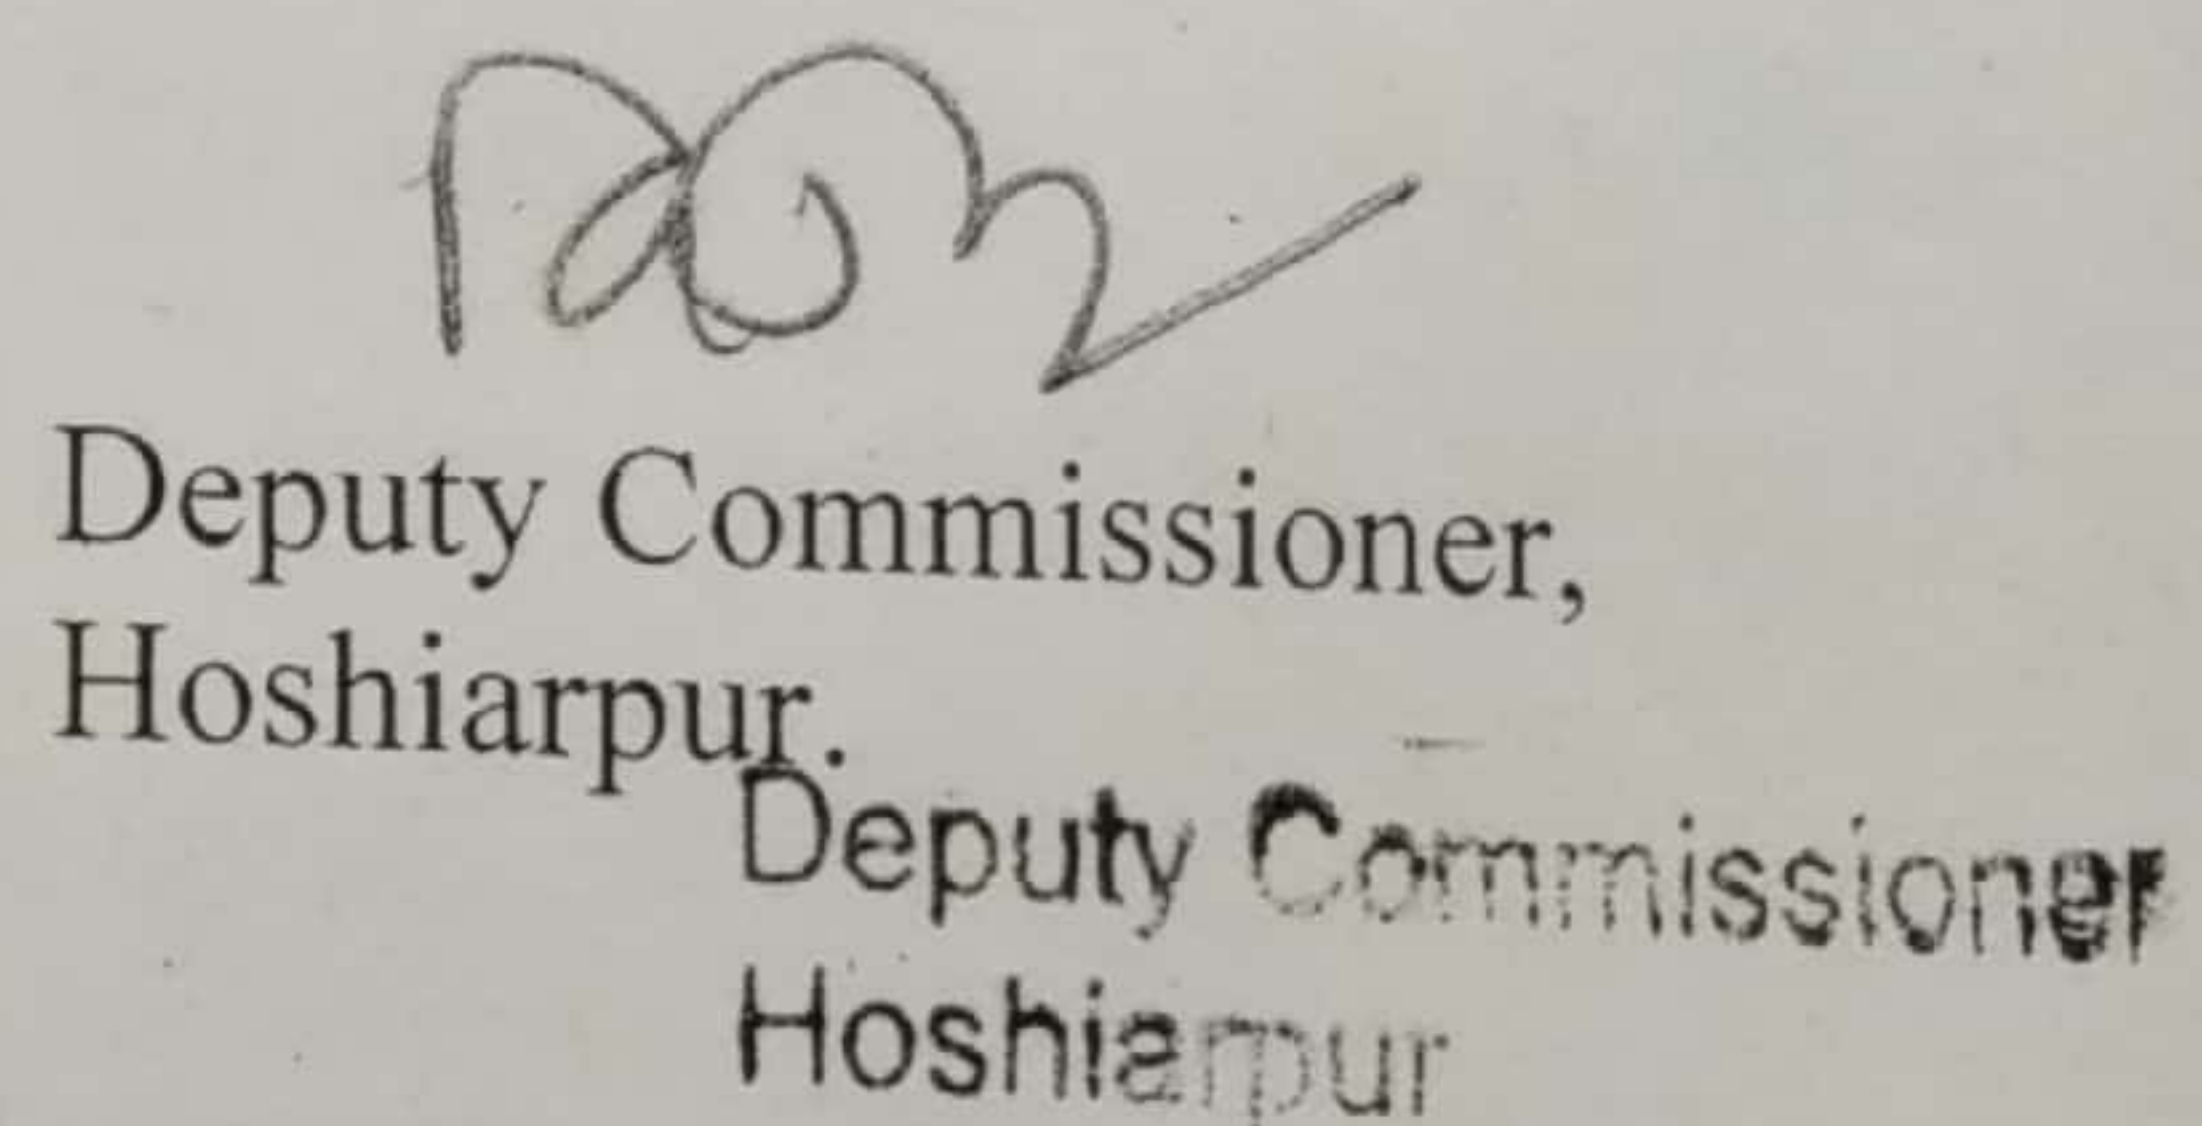 Deputy Commissioner,
Hoshiarpur.
Deputy Commissioner
Hoshiarpur